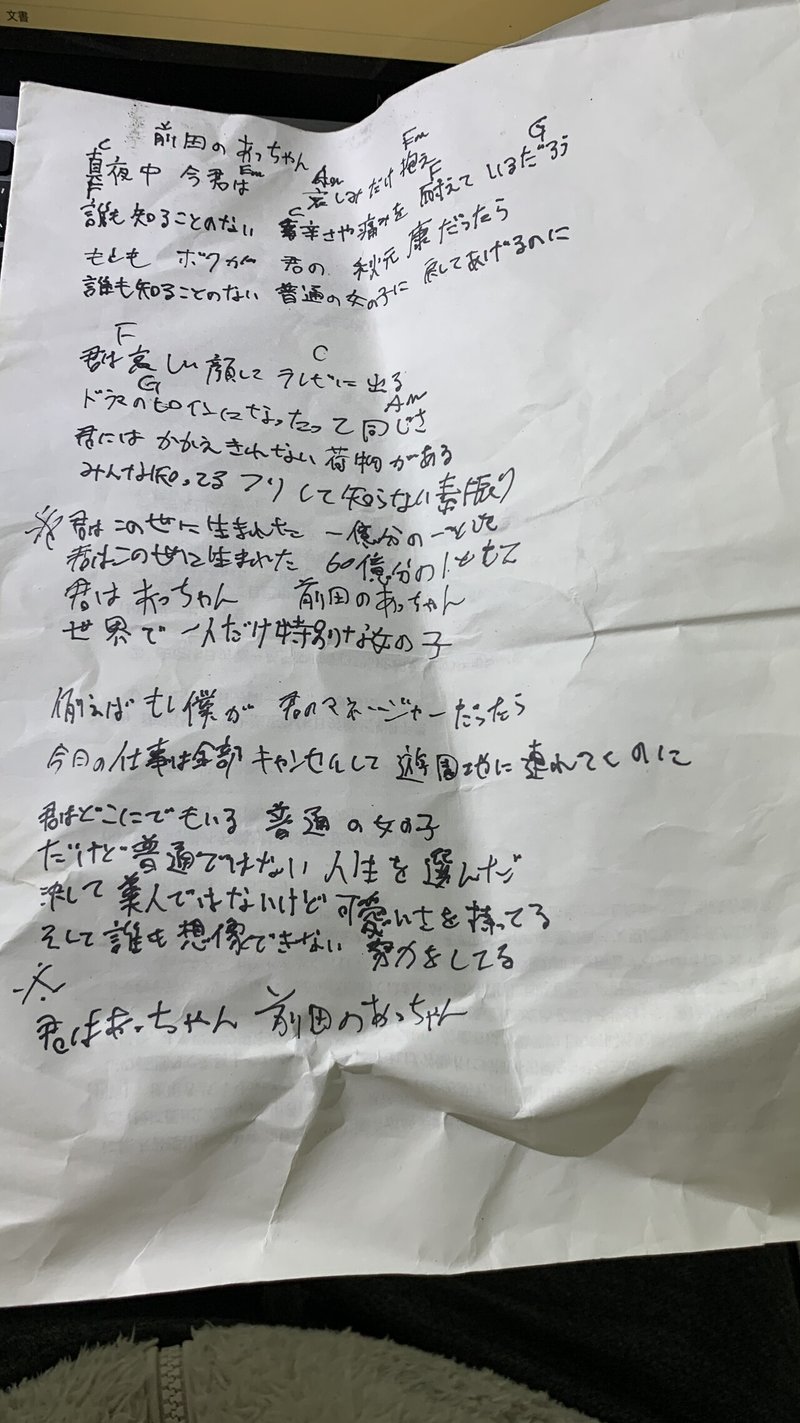 文書
前田のあっちゃん
C Em Am Em G
真夜中 今君は 哀しみだけ抱え 耐えて いるだろう
F C F
誰も知ることのない 辛さや痛みを
もしも ボクが 君の 秋元 康だったら
誰も知ることのない 普通の女の子に 戻してあげるのに
F C
君は哀しい顔して テレビに出る
G Am
ドラマのヒロインになったって同じさ
君には かかえきれない 荷物がある
みんな知ってる フリして知らない素振り
※君はこの世に生まれた 一億分の一
君はこの世に生まれた 60億分の1
君は あっちゃん 前田のあっちゃん
世界で 一人だけ特別な女の子
例えば もし僕が 君のマネージャーだったら
今日の仕事は全部 キャンセルして 遊園地に 連れてくのに
君はどこにでもいる 普通の女の子
だけど普通ではない 人生を選んだ
決して 美人ではないけど 可愛いさを持ってる
そして誰も想像できない 努力をしてる
※
君はあっちゃん 前田のあっちゃん
C